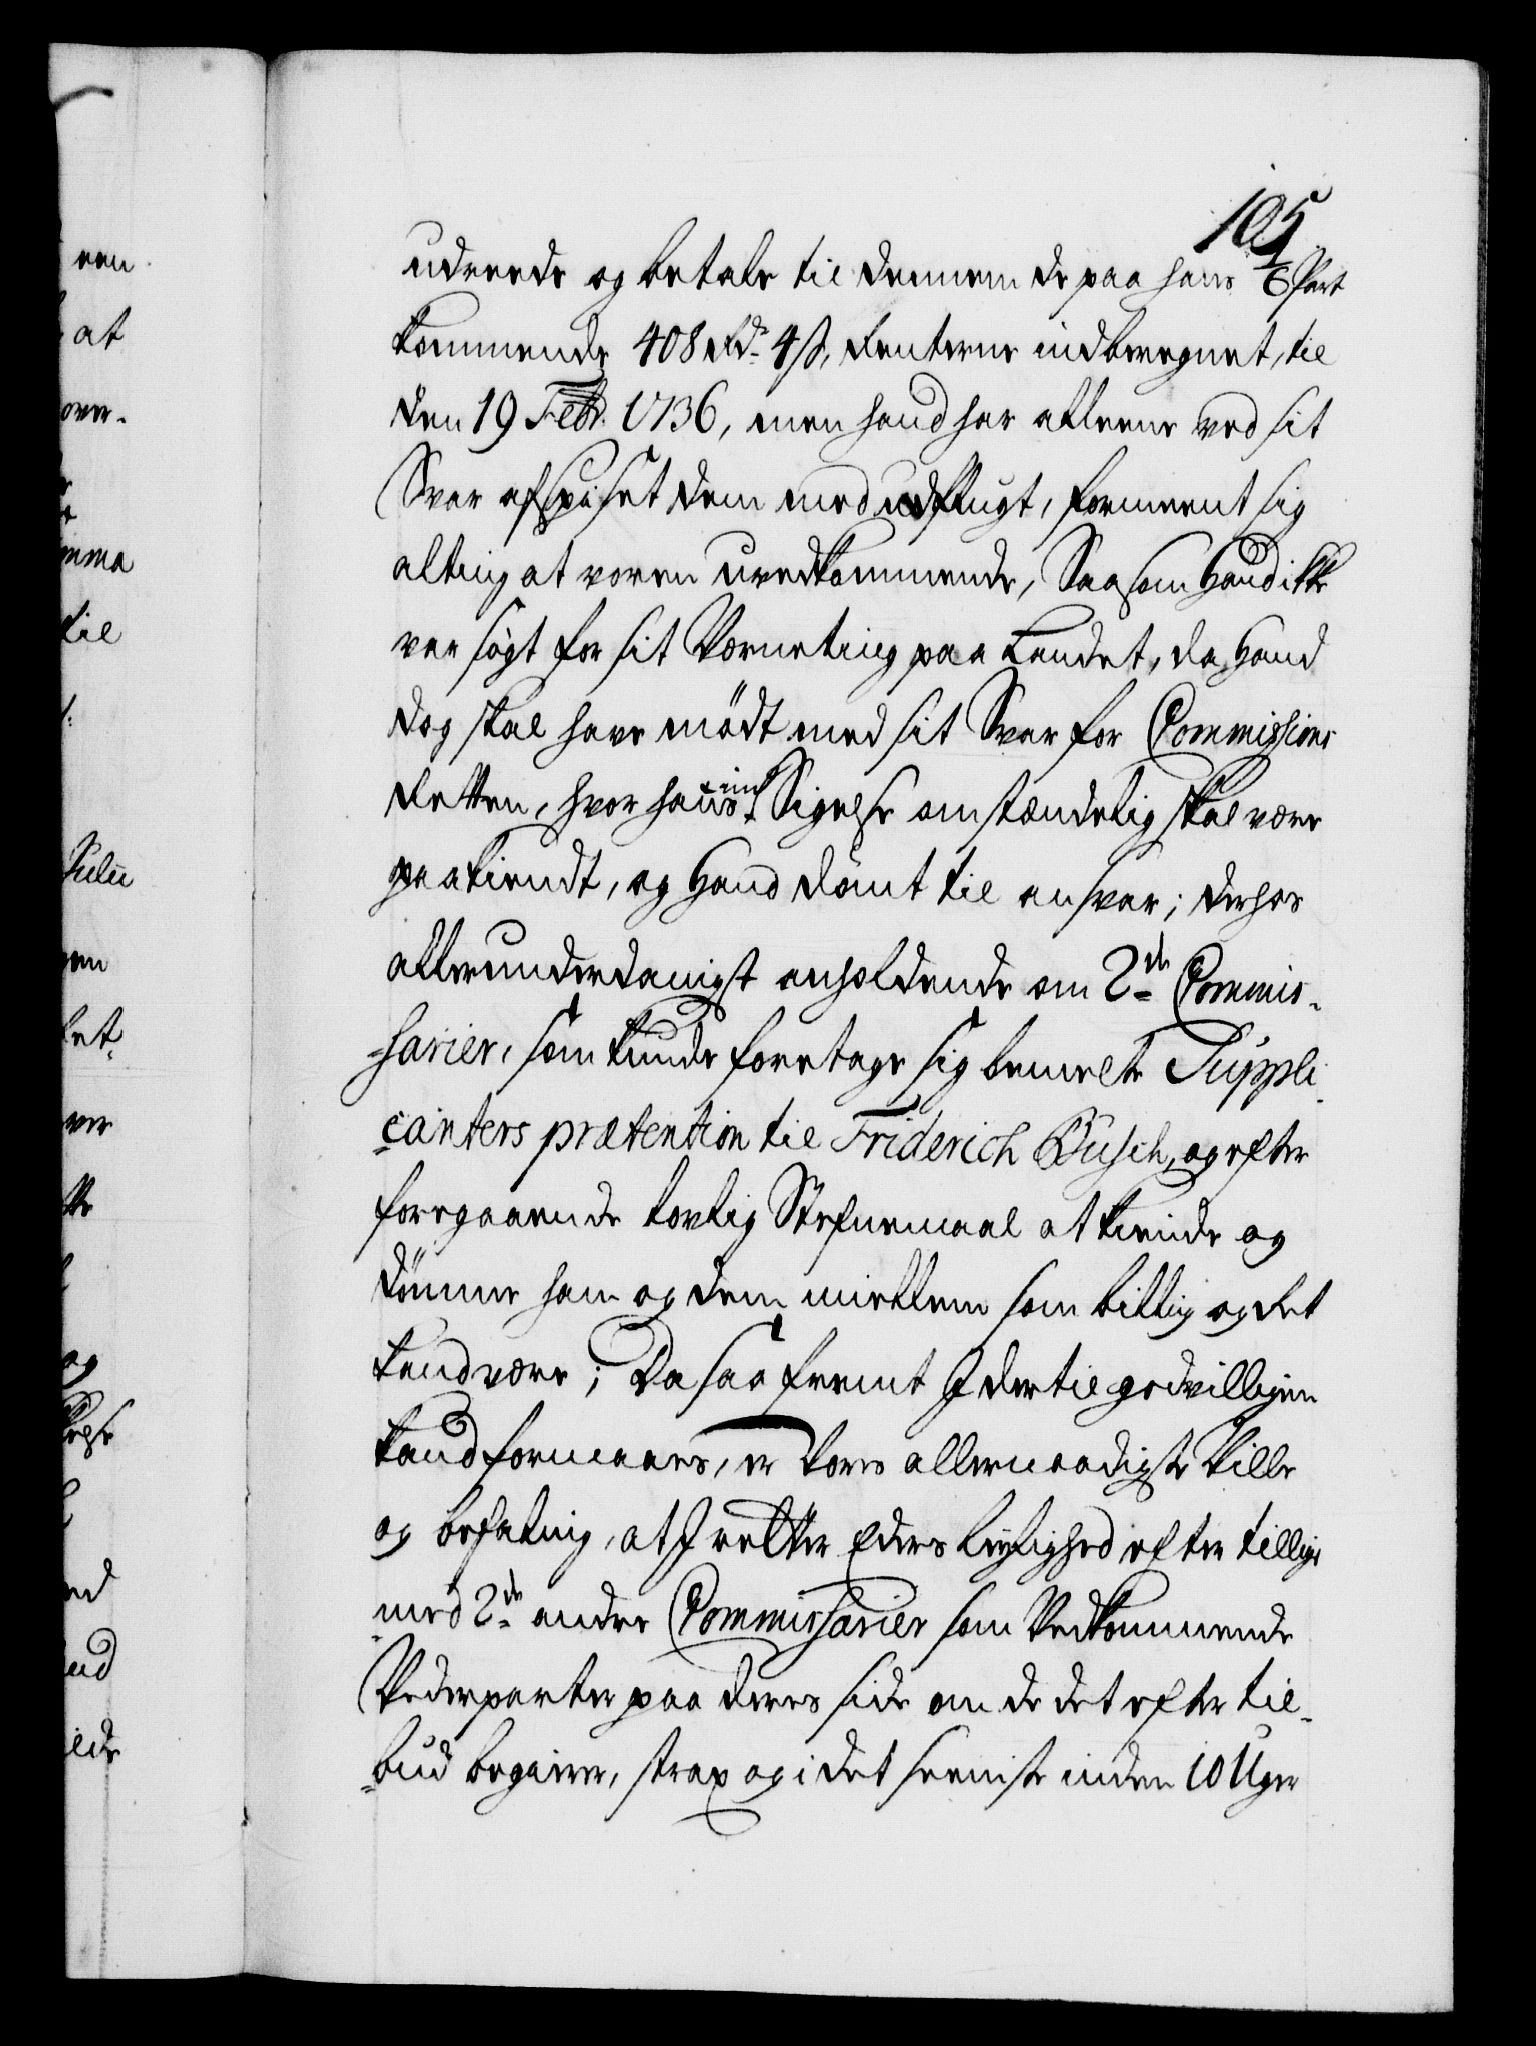 105
udreede og betale til dennem de paa hans 1/6 Part
kommende 408 Rd. 4 ß, Renterne indberegnet, til
den 19 Febr. 1736, men hand har alleene ved sit
Svar afspiiset dem med udflugt, formeent sig
alting at voren uvedkommende, Saasom Hand ikke
var søgt for sit Værneting paa Landet, da Hand
dog skal have mødt med sit Svar for Commissions
Retten, hvor hans ind Sigelse omstændelig skal være
paakiendt, og Hand dømt til ansvar; derhos
allerunderdanigst anholdende om 2de Commis-
-sarier, som kunde foretage sig bemelte Suppli-
-canters prætention til Friderich Busch, og efter
foregaaende lovlig Stefnemaal at kiende og
dømme ham og dem imellem som billig og Ret
kand være; Da saafremt I dertil godvilligen
kand formaaes, er Vores allernaadigste Ville
og befaling, at I retter Eders leylighed efter tillige
med 2de andre Commissarier som Vedkommende
Vederparter paa deres side om de det efter til-
-bud begiærer, strax og i det seeniste inden 10 Uger
een
at
over-
til
Julii
ver
og
ud